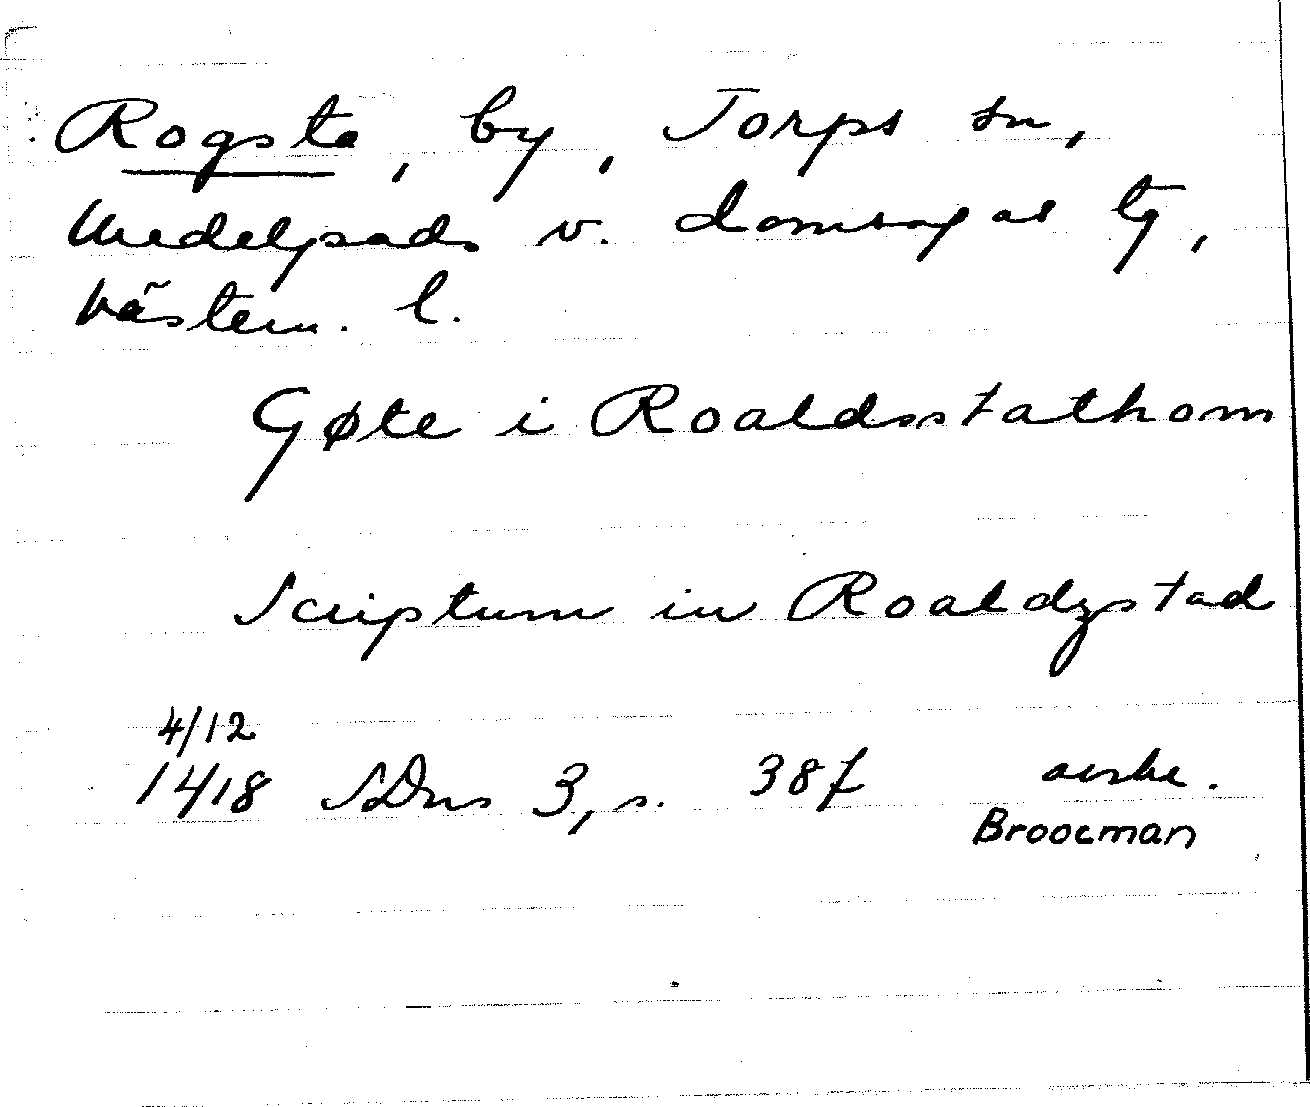 Rogsta, by, Torps sn,
Medelpads v. domsagas tg,
Västern. l.
Gøte i Roaldsstathom
Scriptum in Roaldzstad
4/12
1418 SDns 3, s. 38f avskr.
Brooeman